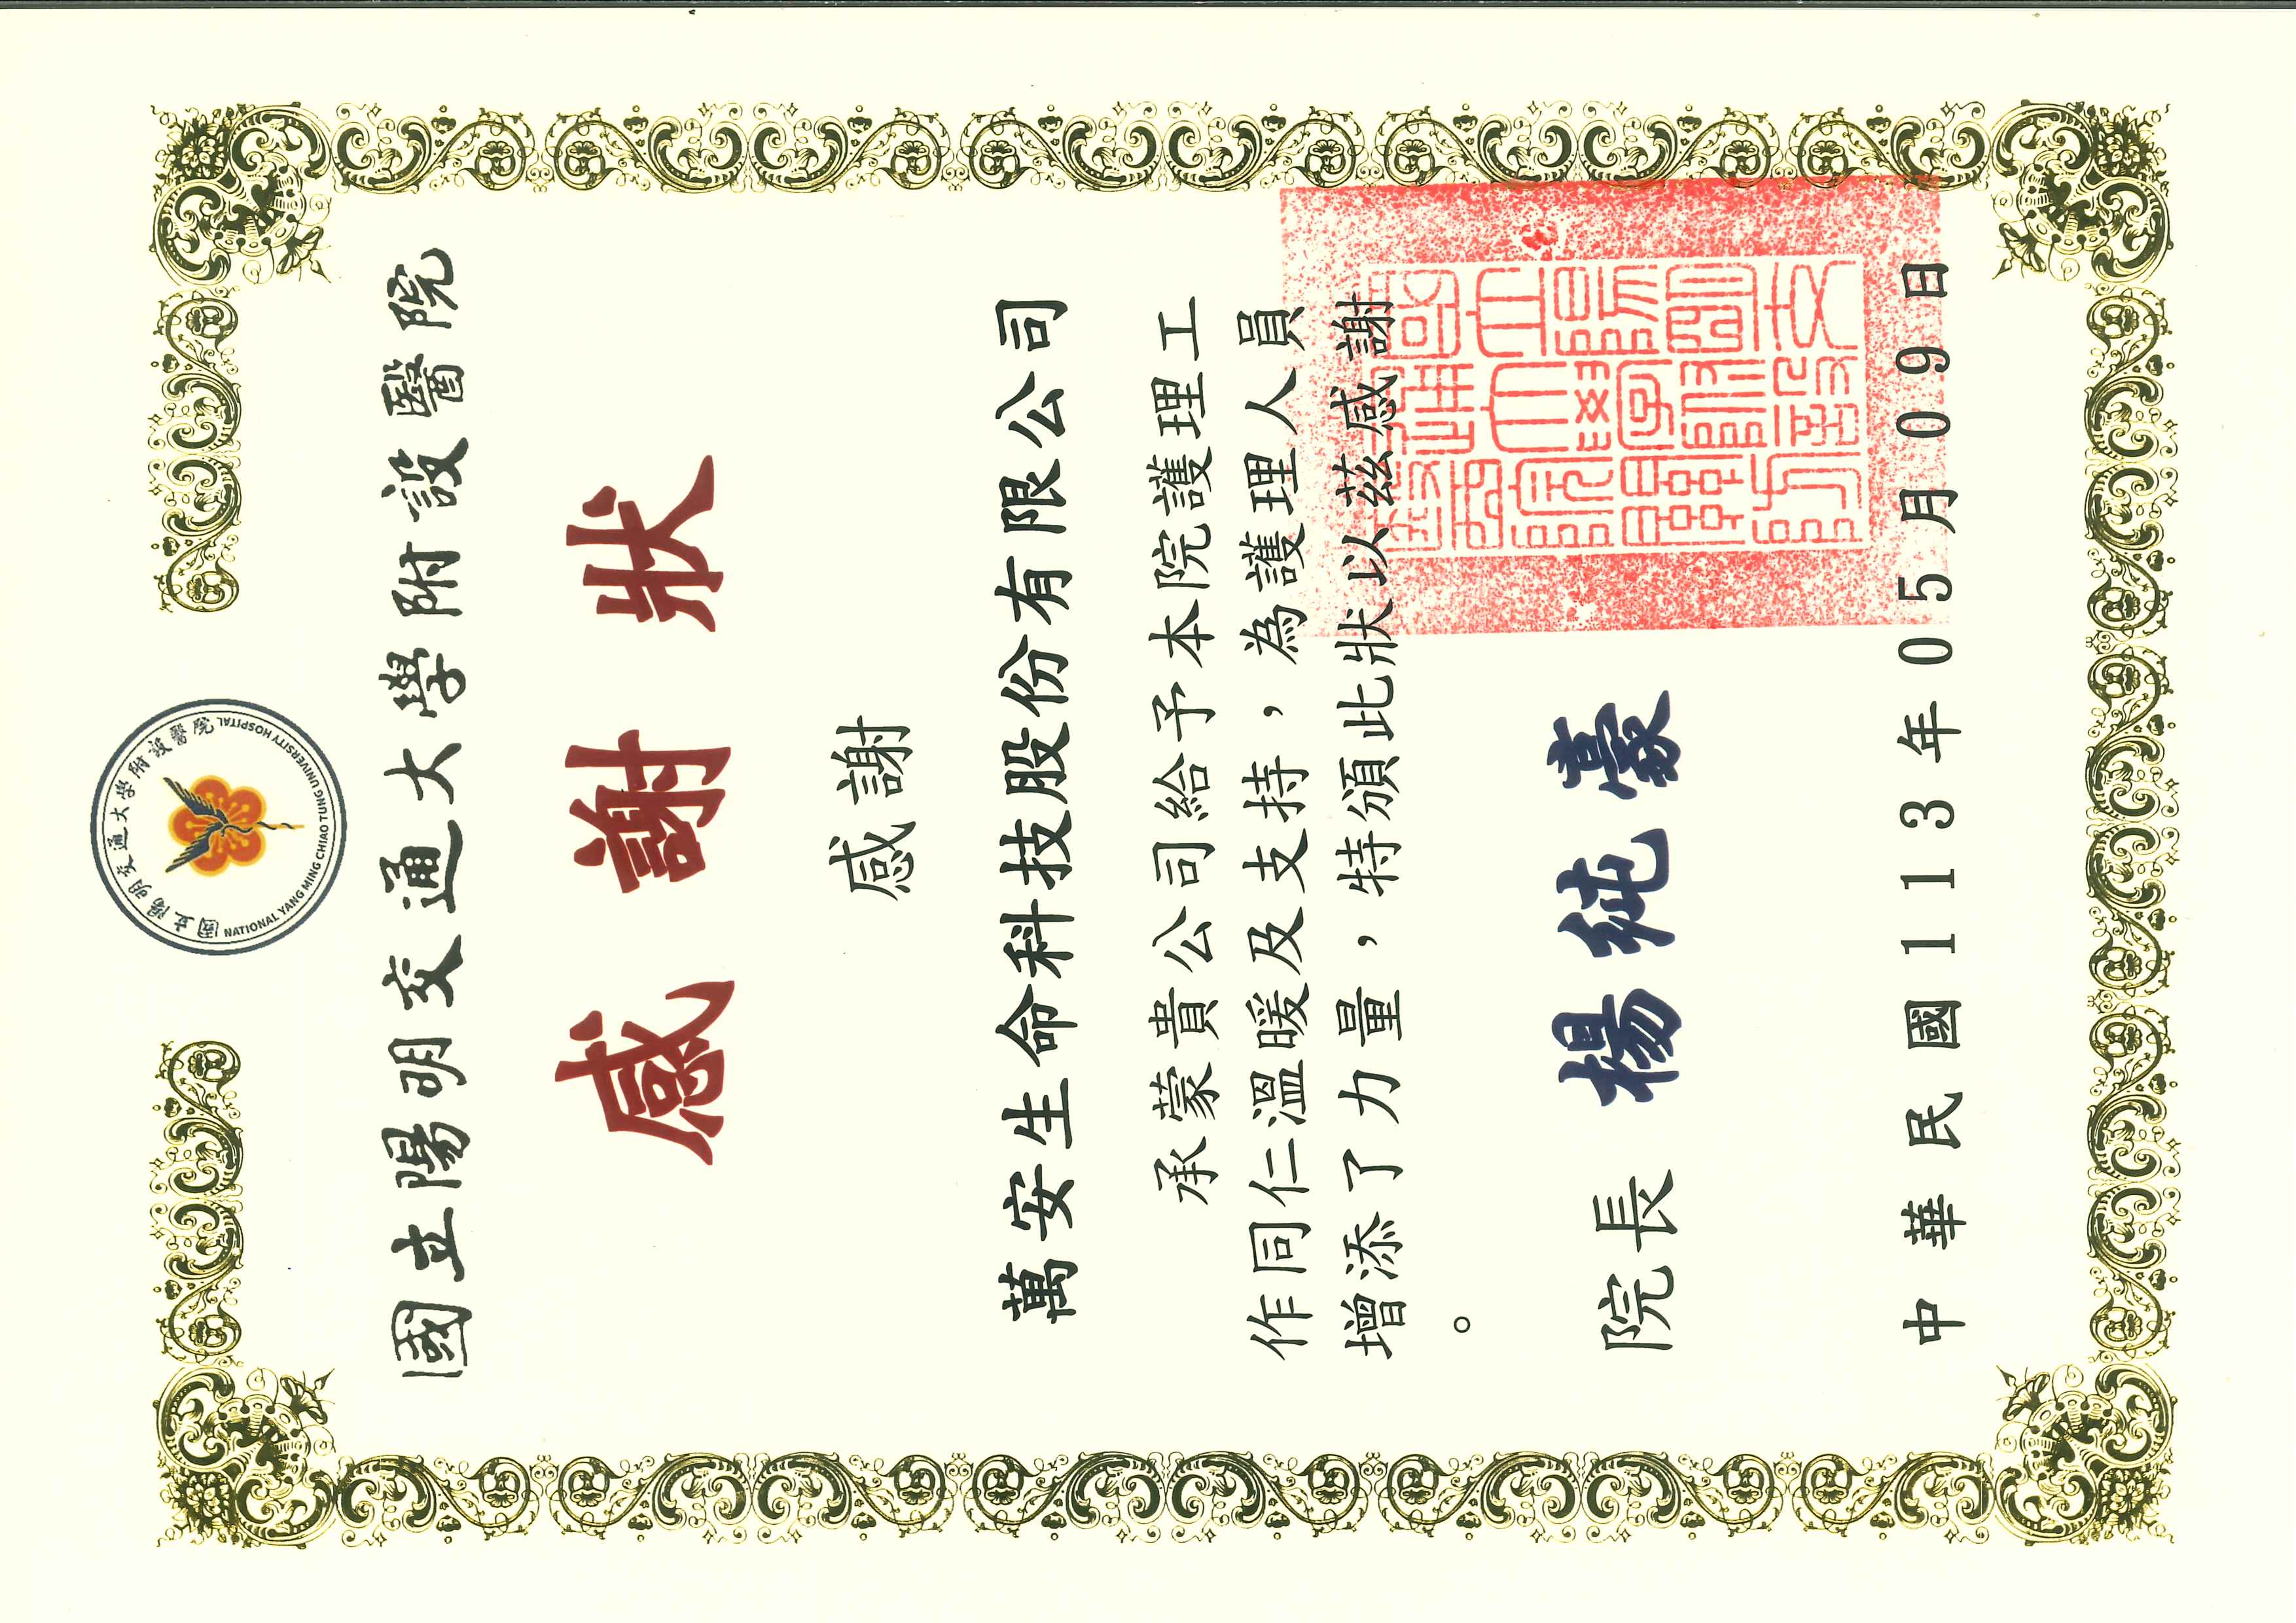 國立陽明交通大學附設醫院
NATIONAL YANG MING CHIAO TUNG UNIVERSITY HOSPITAL
國立陽明交通大學附設醫院
感謝狀
感謝
萬安生命科技股份有限公司
承蒙貴公司給予本院護理工
作同仁溫暖及支持，為護理人員
增添了力量，特頒此狀以茲感謝
。
院長 楊純豪
中華民國113年05月09日